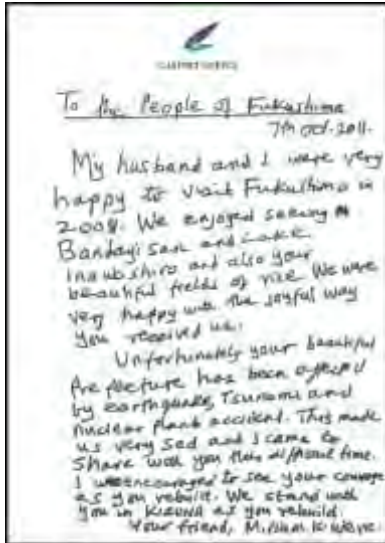 CABINET OFFICE
To the People of Fukushima
7th Oct. 2011.
My husband and I were very
happy to visit Fukushima in
2008. We enjoyed seeing
Bandayi San and Lake
Inawashiro and also your
beautiful fields of rice. We were
very happy with the joyful way
you received us.
Unfortunately your beautiful
Prefecture has been affected
by earthquake, Tsunami and
nuclear plant accident. This made
us very sad and I came to
share with you this difficult time.
I was encouraged to see your courage
as you rebuild. We stand with
you in KIZUNA as you rebuild.
Your friend,